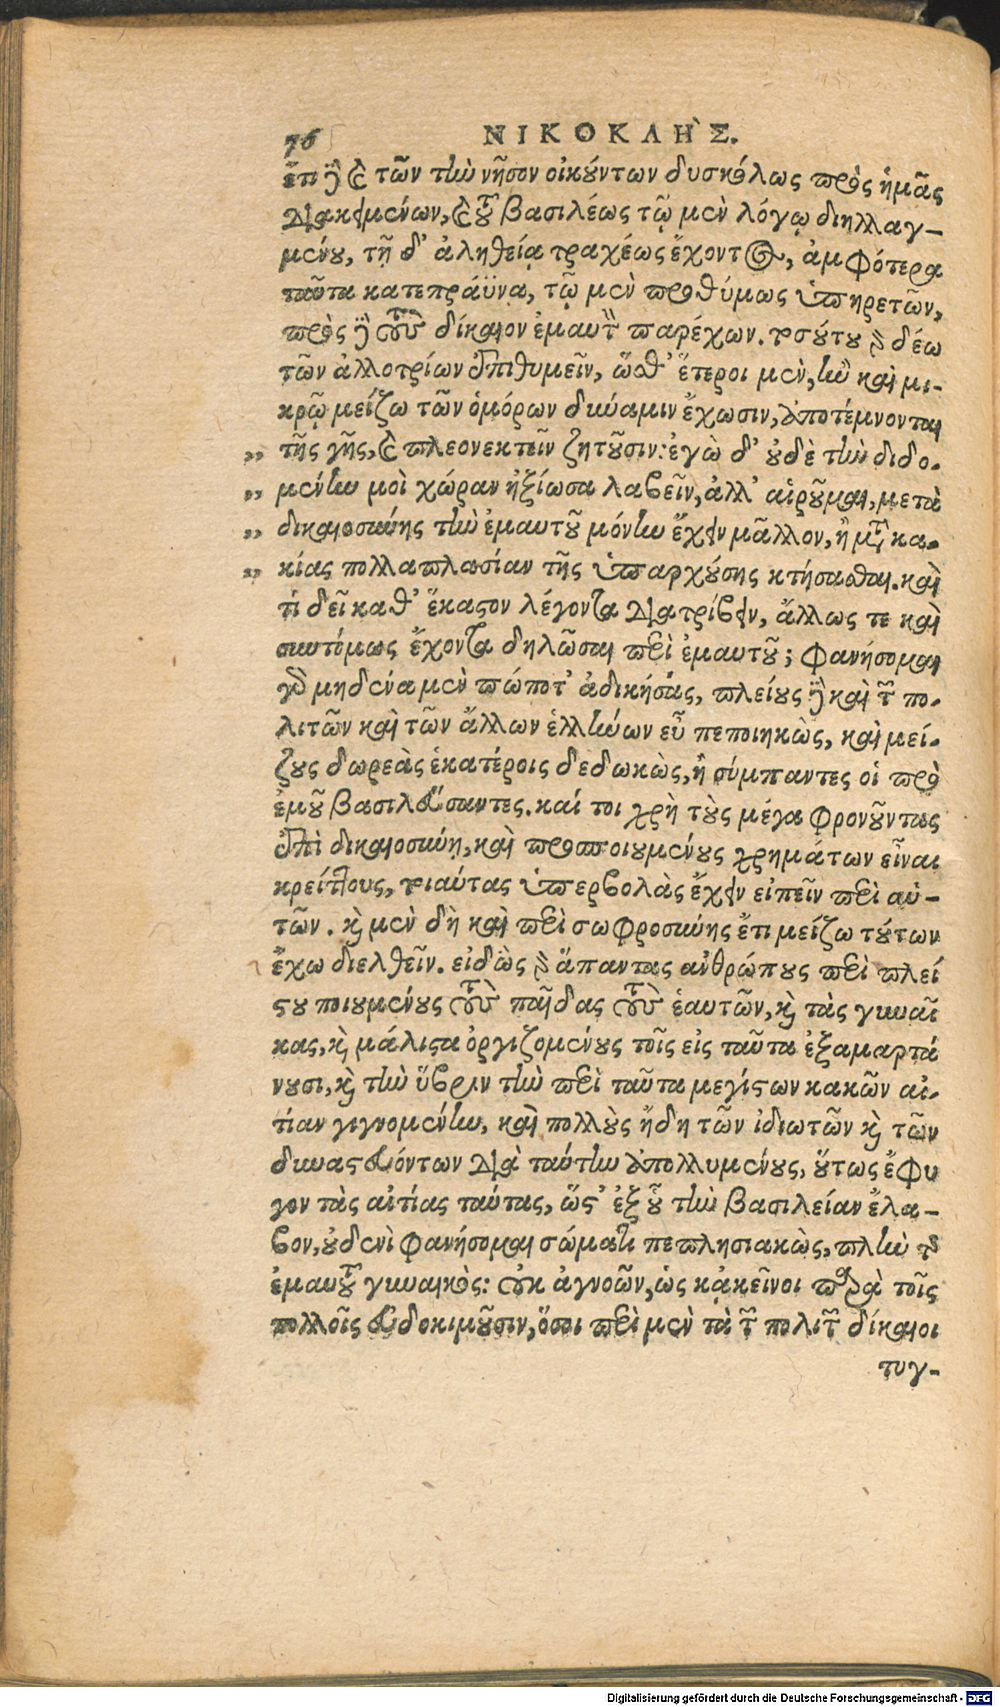 76 ΝΙΚΟΚΛΗ῀Σ.
ἔτι δὲ καὶ τῶν τὴν νῆσον οἰκούντων δυσκόλως πρὸς ἡμᾶς
διακειμένων, καὶ τοῦ βασιλέως τῷ μὲν λόγῳ διηλλαγ-
μένου, τῇ δ' ἀληθείᾳ τραχέως ἔχοντος, ἀμφότερα
ταῦτα κατεπράϋνα, τῷ μὲν προθύμως ὑπηρετῶν,
πρὸς δὲ τοὺς δίκαιον ἐμαυτὸν παρέχων. τοσούτου γὰρ δέω
τῶν ἀλλοτρίων ἐπιθυμεῖν, ὥσθ' ἕτεροι μὲν, ἢν καὶ μι-
κρῷ μείζω τῶν ὁμόρων δύναμιν ἔχωσιν, ἀποτέμνονται
„ τῆς γῆς, καὶ πλεονεκτεῖν ζητοῦσιν: ἐγὼ δ' οὐδὲ τὴν διδο-
„ μένην μοὶ χώραν ἠξίωσα λαβεῖν, ἀλλ' αἱροῦμαι, μετὰ
„ δικαιοσύνης τὴν ἐμαυτοῦ μόνην ἔχειν μᾶλλον, ἢ μετὰ κα-
„ κίας πολλαπλασίαν τῆς ὑπαρχούσης κτήσασθαι. καὶ
τί δεῖ καθ' ἕκαστον λέγοντα διατρίβειν, ἄλλως τε καὶ
συντόμως ἔχοντα δηλῶσαι περὶ ἐμαυτοῦ; φανήσομαι
γὰρ μηδένα μὲν πώποτ' ἀδικήσας, πλείους δὲ καὶ τῶν πο-
λιτῶν καὶ τῶν ἄλλων ἑλλήνων εὖ πεποιηκὼς, καὶ μεί-
ζους δωρεὰς ἑκατέροις δεδωκὼς, ἢ σύμπαντες οἱ πρὸ
ἐμοῦ βασιλεύσαντες. καί τοι χρὴ τοὺς μέγα φρονοῦντας
ἐπὶ δικαιοσύνῃ, καὶ προσποιουμένους χρημάτων εἶναι
κρείττους, τοιαύτας ὑπερβολὰς ἔχειν εἰπεῖν περὶ αὑ-
τῶν. καὶ μὲν δὴ καὶ περὶ σωφροσύνης ἔτι μείζω τούτων
ἔχω διελθεῖν. εἰδὼς γὰρ ἅπαντας ἀνθρώπους περὶ πλεί
στου ποιουμένους τοὺς παῖδας τοὺς ἑαυτῶν, καὶ τὰς γυναῖ
κας, καὶ μάλιστα ὀργιζομένους τοῖς εἰς ταῦτα ἐξαμαρτά
νουσι, καὶ τὴν ὕβριν τὴν περὶ ταῦτα μεγίστων κακῶν αἰ-
τίαν γιγνομένην, καὶ πολλοὺς ἤδη τῶν ἰδιωτῶν καὶ τῶν
δυναστευόντων διὰ ταύτην ἀπολλυμένους, οὕτως ἔφυ
γον τὰς αἰτίας ταύτας, ὥστ' ἐξ οὗ τὴν βασιλείαν ἔλα-
βον, οὐδενὶ φανήσομαι σώματι πεπλησιακὼς, πλὴν τῆς
ἐμαυτοῦ γυναικός: οὐκ ἀγνοῶν, ὡς κἀκεῖνοι παρὰ τοῖς
πολλοῖς εὐδοκιμοῦσιν, ὅσοι περὶ μὲν τὰ τῶν πολιτῶν δίκαιοι
τυγ-
Digitalisierung gefördert durch die Deutsche Forschungsgemeinschaft - DFG